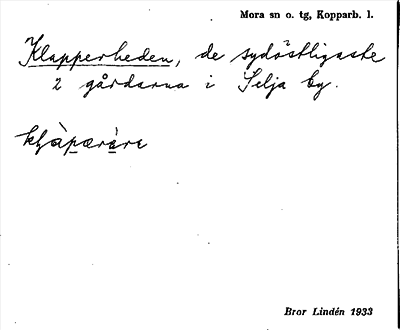 Mora sn o. tg, Kopparb. l.
Klapperheden, de sydöstligaste
2 gårdarna i Selja by.
Bror Lindén 1933